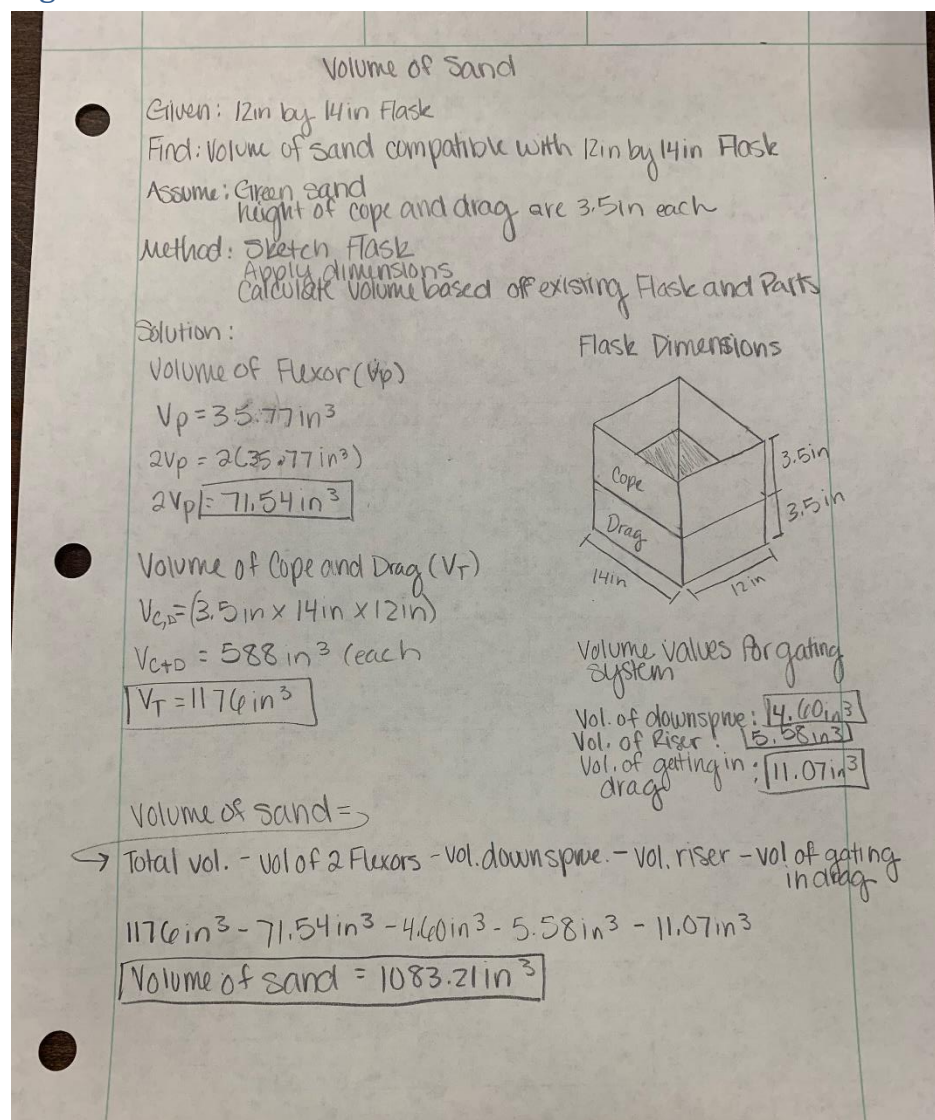 Volume of Sand
Given: 12in by 14in Flask
Find: Volume of sand compatible with 12in by 14in Flask
Assume: Green sand
height of cope and drag are 3.5in each
Method: Sketch Flask
Apply dimensions
Calculate volume based off existing Flask and Parts
Solution:
Volume of Flexor (Vp)
Vp = 35.77 in³
2Vp = 2(35.77 in³)
2Vp = 71.54 in³
Flask Dimensions
Cope
Drag
3.5in
3.5in
14in
12in
Volume of Cope and Drag (VT)
VC,D = (3.5 in x 14in x 12in)
VC+D = 588 in³ (each
VT = 1176 in³
Volume values for gating
system
Vol. of downsprue: 4.60in³
Vol. of Riser: 5.58in³
Vol. of gating in: 11.07in³
drag
Volume of sand =
→ Total vol. - vol of 2 Flexors - vol. downsprue. - vol. riser - vol of gating
in drag
1176 in³ - 71.54 in³ - 4.60 in³ - 5.58 in³ - 11.07 in³
Volume of sand = 1083.21 in³